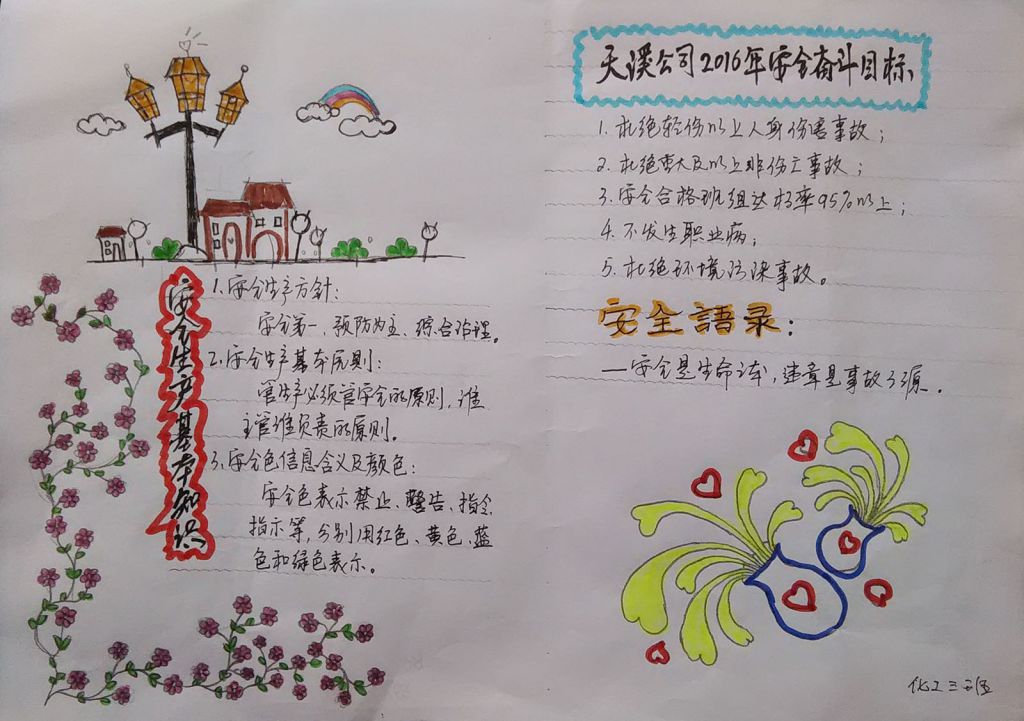 安全生产基本知识
1.安全生产方针：
安全第一、预防为主、综合治理。
2.安全生产基本原则：
管生产必须管安全的原则，谁
主管谁负责的原则。
3.安全色信息含义及颜色：
安全色表示禁止、警告、指令
指示等，分别用红色、黄色、蓝
色和绿色表示。
天溪公司2016年安全奋斗目标
1.杜绝轻伤以上人身伤害事故；
2.杜绝重大及以上非伤亡事故；
3.安全合格班组达标率95%以上；
4.不发生职业病；
5.杜绝环境污染事故。
安全語录：
—安全是生命之本，违章是事故之源.
化工三班